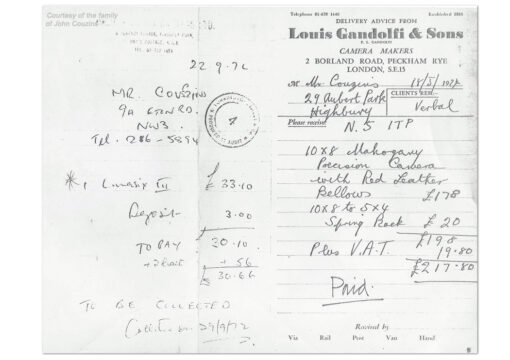 Courtesy of the family
of John Couzins
22.9.72
MR. COUSZINS
9A ETON RD.
NW3.
Tel. 286-5894
7
1 Lunasix III £ 33.10
Deposit 3.00
TO PAY 30.10.
+ 56
£ 30.66
TO BE COLLECTED
29/9/72
Telephone 01-639 Established 1885
DELIVERY ADVICE FROM
Louis Gandolfi & Sons
CAMERA MAKERS
2 BORLAND ROAD, PECKHAM RYE
LONDON, S.E.15
M Mr Couzins
29 Aubert Park CLIENTS REF.
Highbury Verbal
Please receive N.5 1TP
10X8 Mahogany
Precision Camera
with Red Leather
Bellows £178
10X8 to 5X4
Spring Back £ 20
£198
Plus V.A.T. 19.80
£217.80
Paid.
Received by
Via Rail Post Van Hand